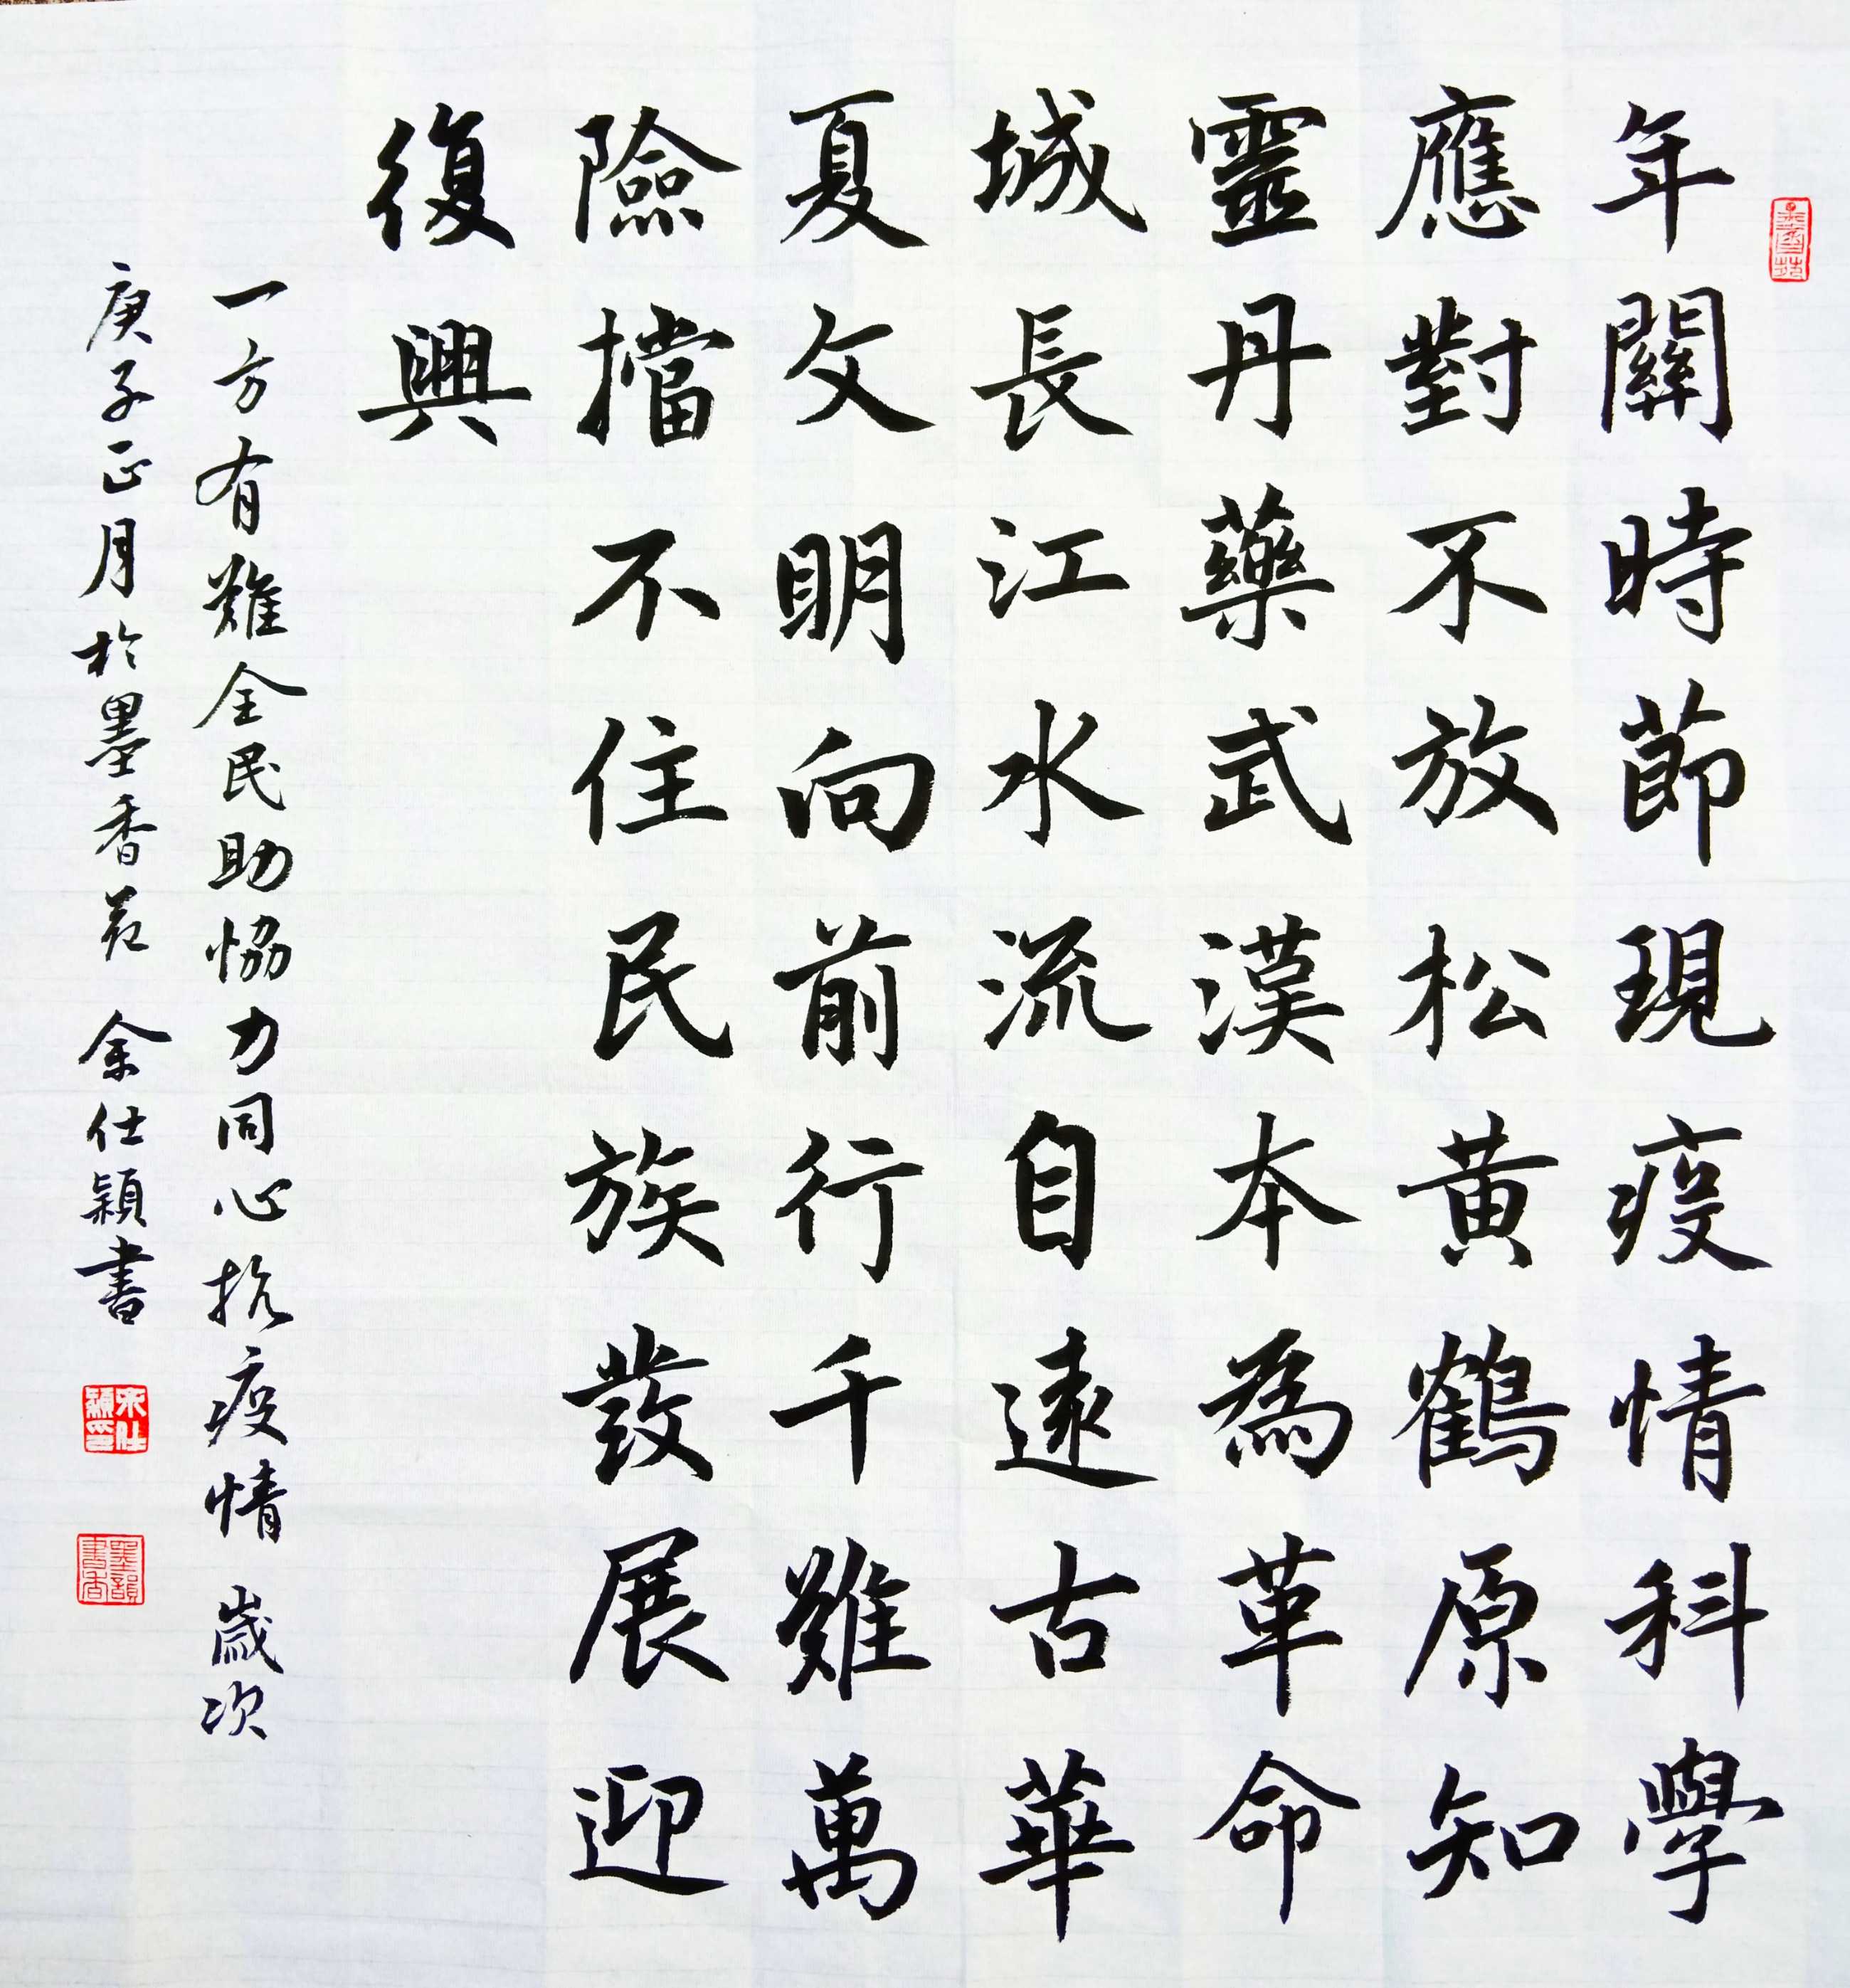 年關時節現疫情科學
應對不放松黄鶴原知
靈丹藥武漢本為革命
城長江水流自遠古華
夏文明向前行千難萬
險擋不住民族發展迎
復興
一方有難全民助恊力同心抗疫情 歲次
庚子正月於墨香苑 余仕穎書